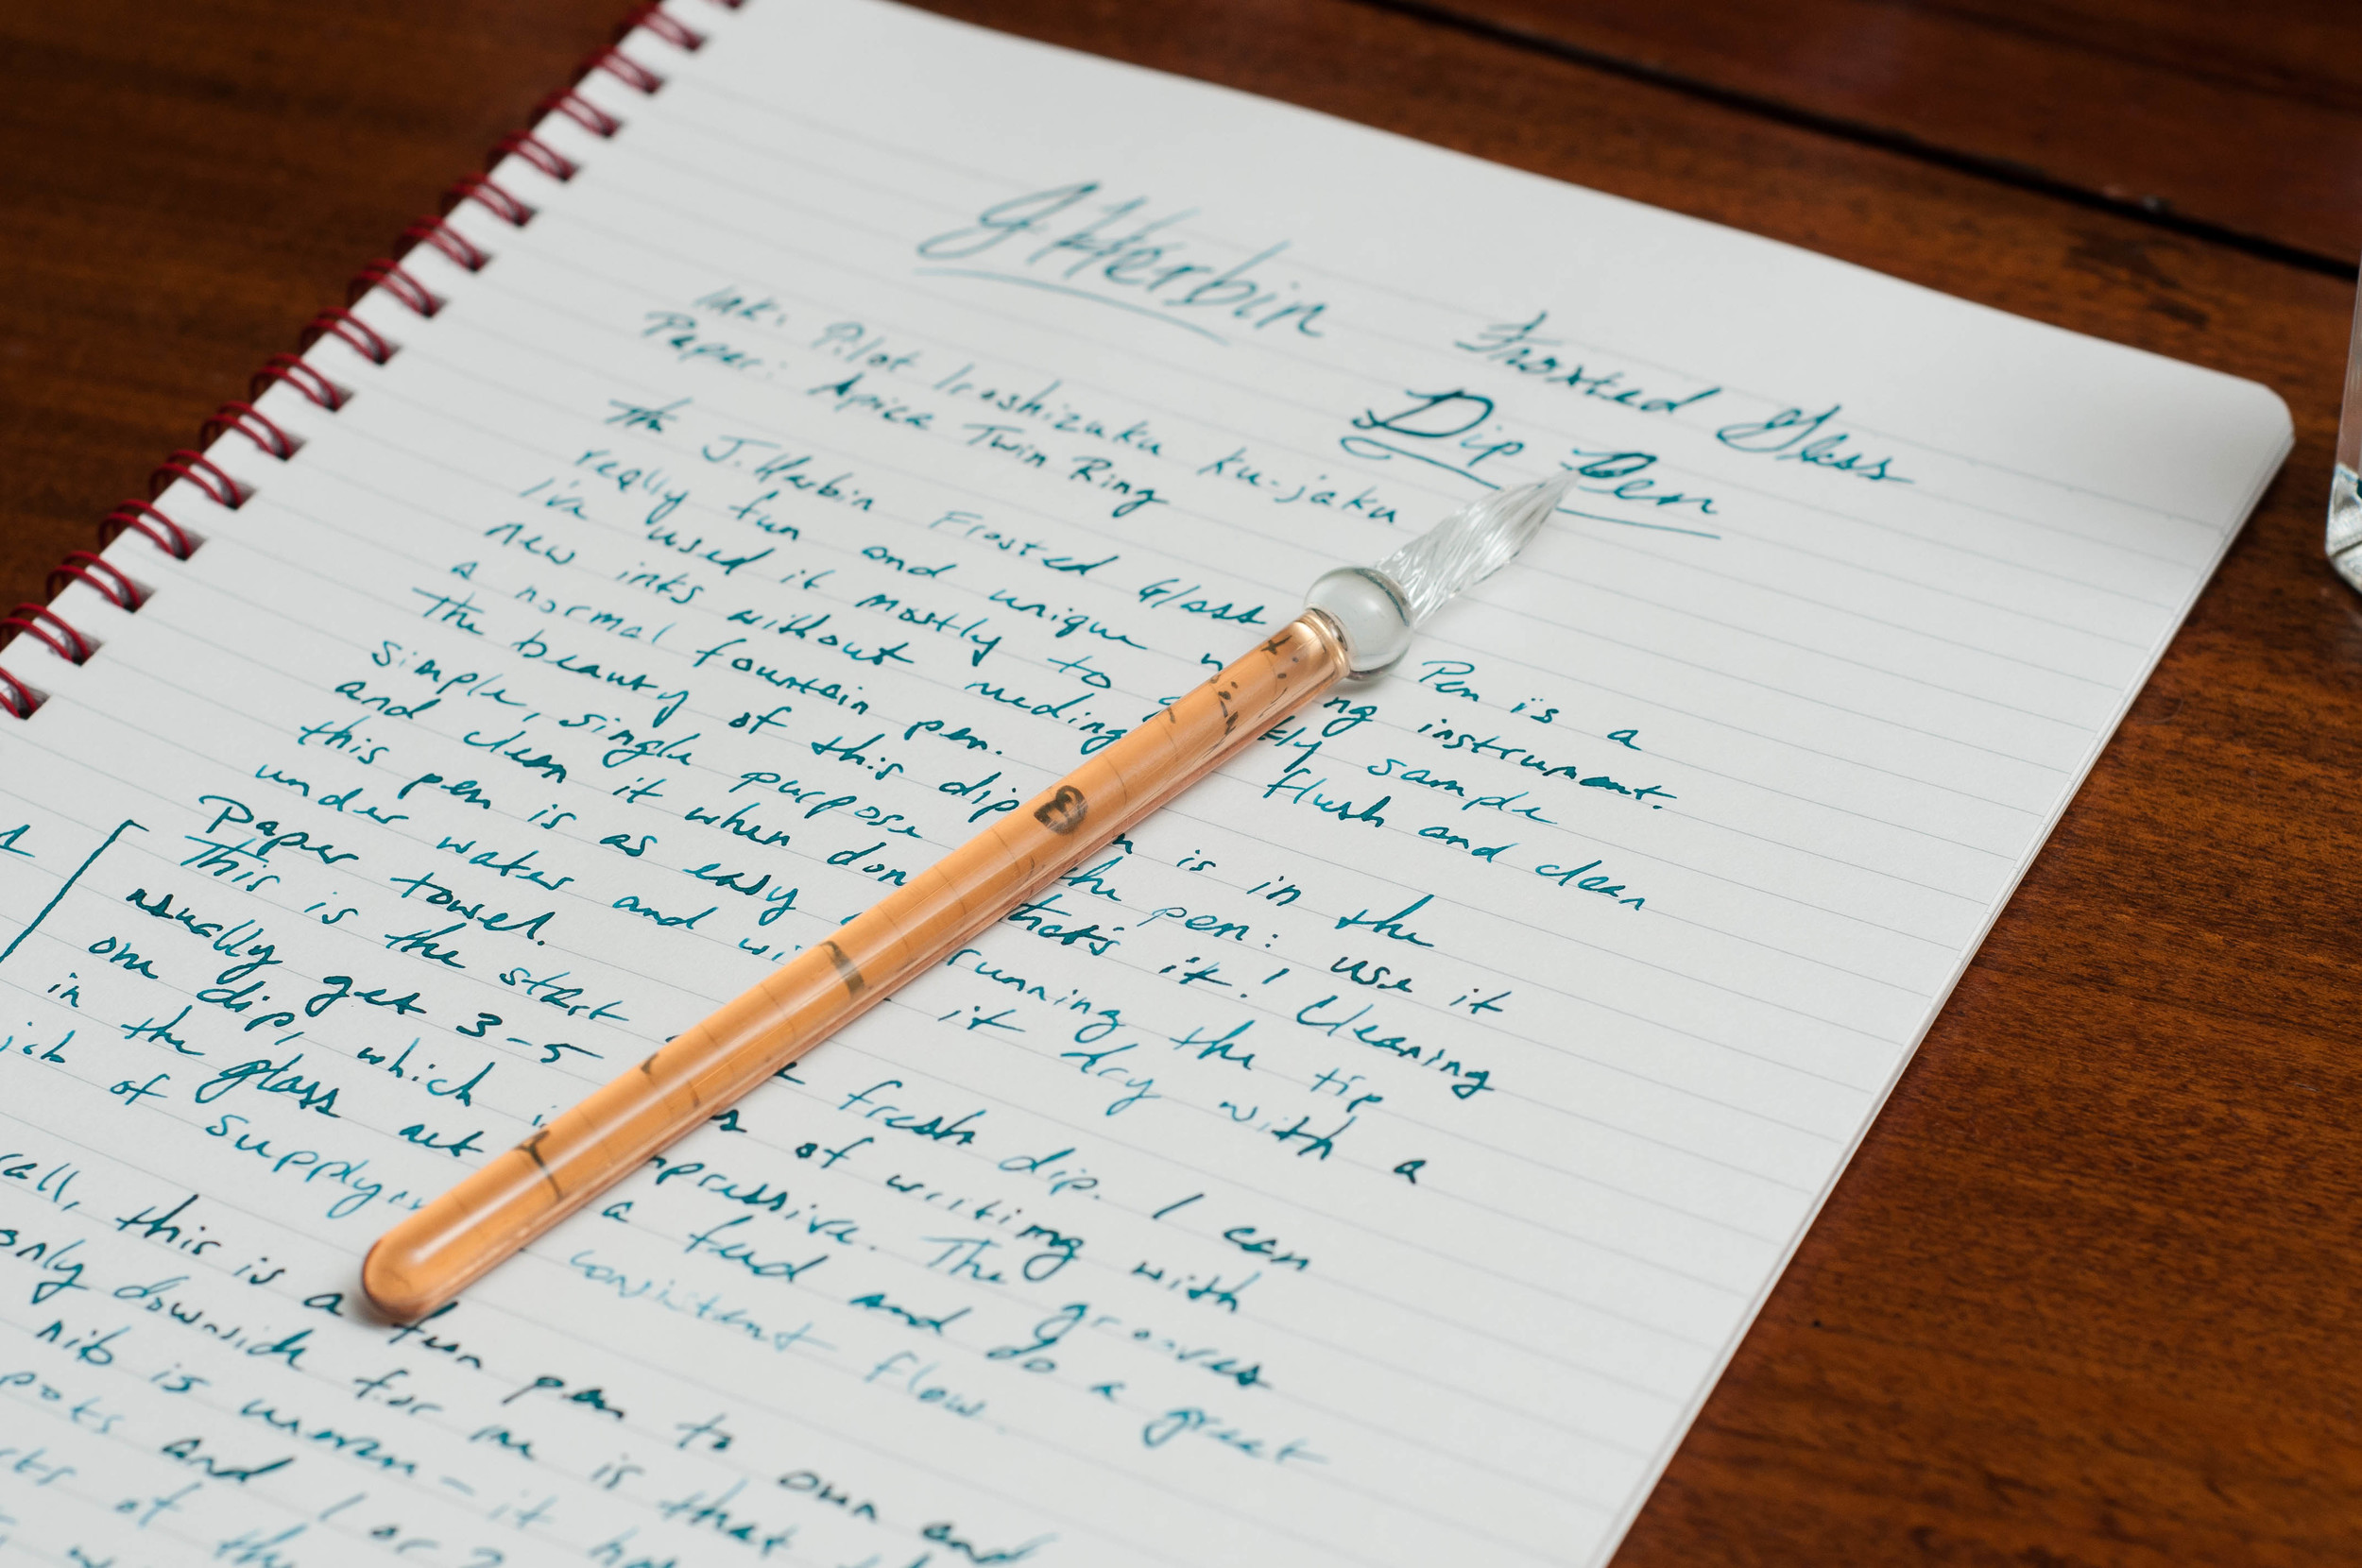 J Herbin Frosted Glass
Dip Pen
Ink: Pilot Iroshizuku Ku-jaku
Paper: Apica Twin Ring
The J. Herbin Frosted Glass Pen is a
really fun and unique ng instrument.
I've used it mostly to tly sample
new inks without needing flush and clean
a normal fountain pen.
The beauty of this dip n is in the
simple, single purpose the pen: use it
and clean it when don that's it! Cleaning
this pen is as easy running the tip
under water and wi it dry with a
Paper towel.
This is the start fresh dip. I can
usually get 3-5 of writing with
one dip, which mpressive. The grooves
in the glass act a feed and do a great
job of supplyin consistent flow.
all, this is a fun pen to own and
only downside for me is that
nib is uneven - it ha
pots and 1 or 2
of the